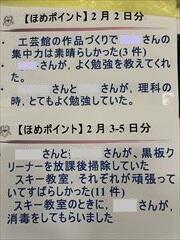 【ほめポイント】2月2日分
・ 工芸館の作品づくりで さんの
集中力は素晴らしかった(3件)
・ さんが、よく勉強を教えてくれ
た。
・ さんと さんが、理科の
時、とてもよく勉強していた。
【ほめポイント】2月3-5日分
さんと さんが、黒板ク
リーナーを放課後掃除していた
スキー教室、それぞれが頑張ってい
ていてすばらしかった(11件)
スキー教室のときに、 さんが、
消毒をしてもらいました